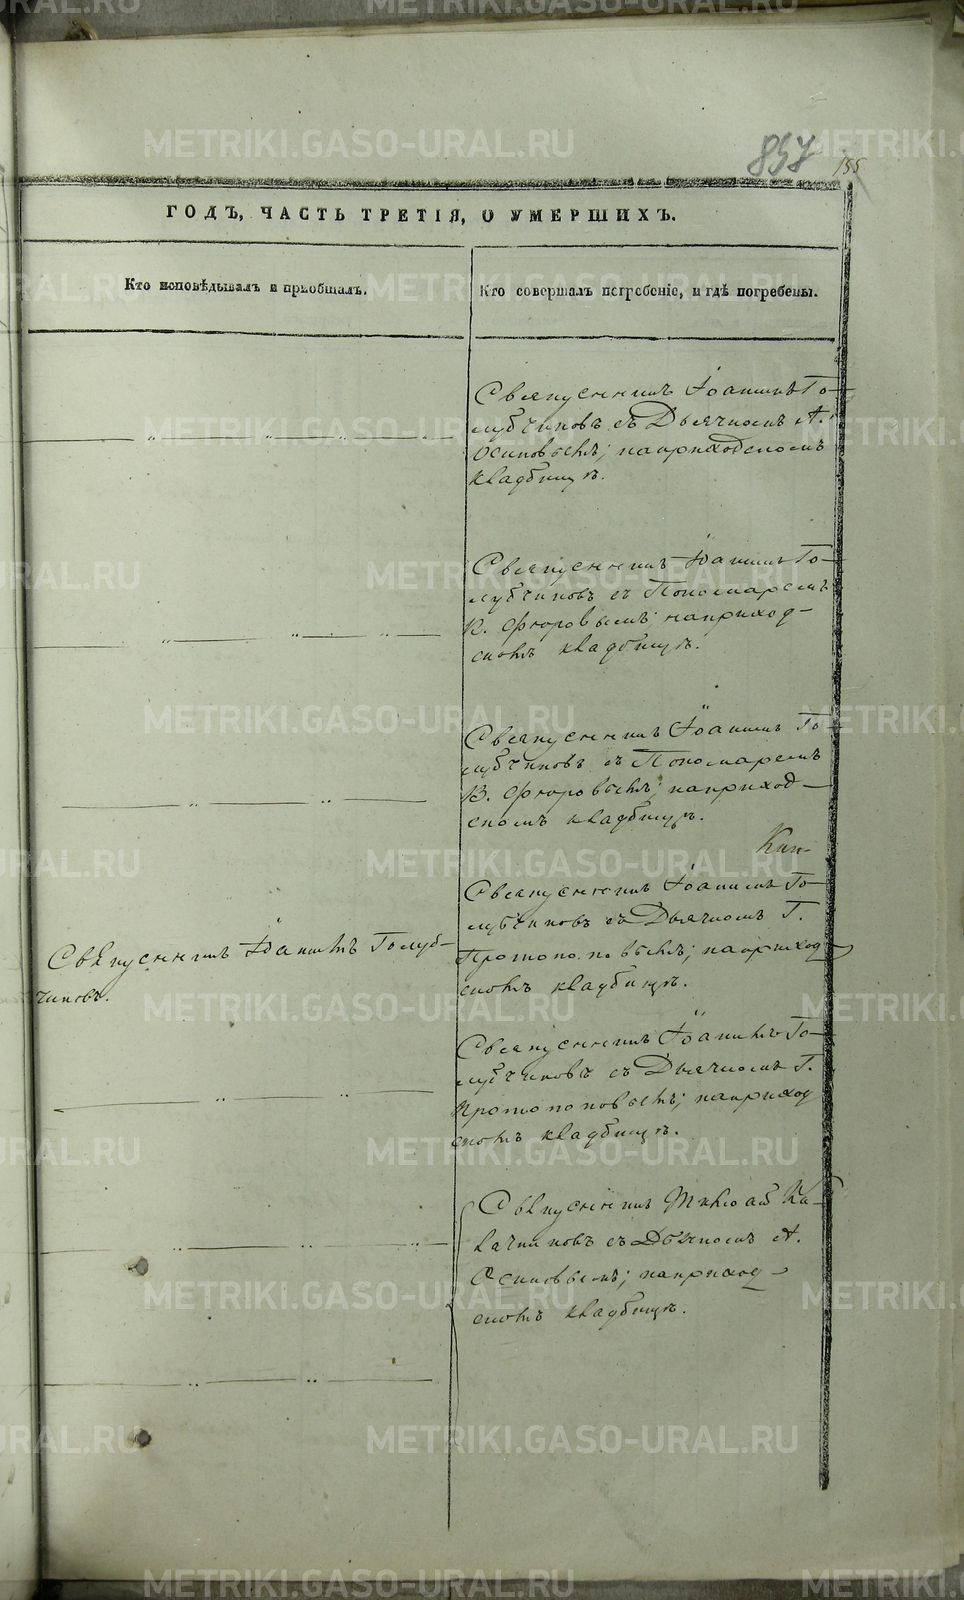 857 155
ГОДЪ, ЧАСТЬ ТРЕТІЯ, О УМЕРШИХЪ.
Кто исповѣдывалъ и пріобщалъ.
Кто совершалъ погребеніе, и гдѣ погребены.
Священникъ Іоаннъ Го-
лубчиковъ съ Дьячкомъ А.
Осиповымъ; на приходскомъ
кладбищѣ.
Священникъ Іоаннъ Го-
лубчиковъ съ Пономаремъ
В. Флоровымъ; на приход-
скомъ кладбищѣ.
Священникъ Іоаннъ Го-
лубчиковъ съ Пономаремъ
В. Флоровымъ; на приход-
скомъ кладбищѣ.
Священникъ Іоаннъ Голуб-
чиковъ.
Священникъ Іоаннъ Го-
лубчиковъ съ Дьячкомъ Г.
Протопоповымъ; на приход-
скомъ кладбищѣ.
Священникъ Іоаннъ Го-
лубчиковъ съ Дьячкомъ Г.
Протопоповымъ; на приход
скомъ кладбищѣ.
Священникъ Николай Ка-
лачниковъ съ Дьячкомъ А.
Осиповымъ; на приход-
скомъ кладбищѣ.
METRIKI.GASO-URAL.RU